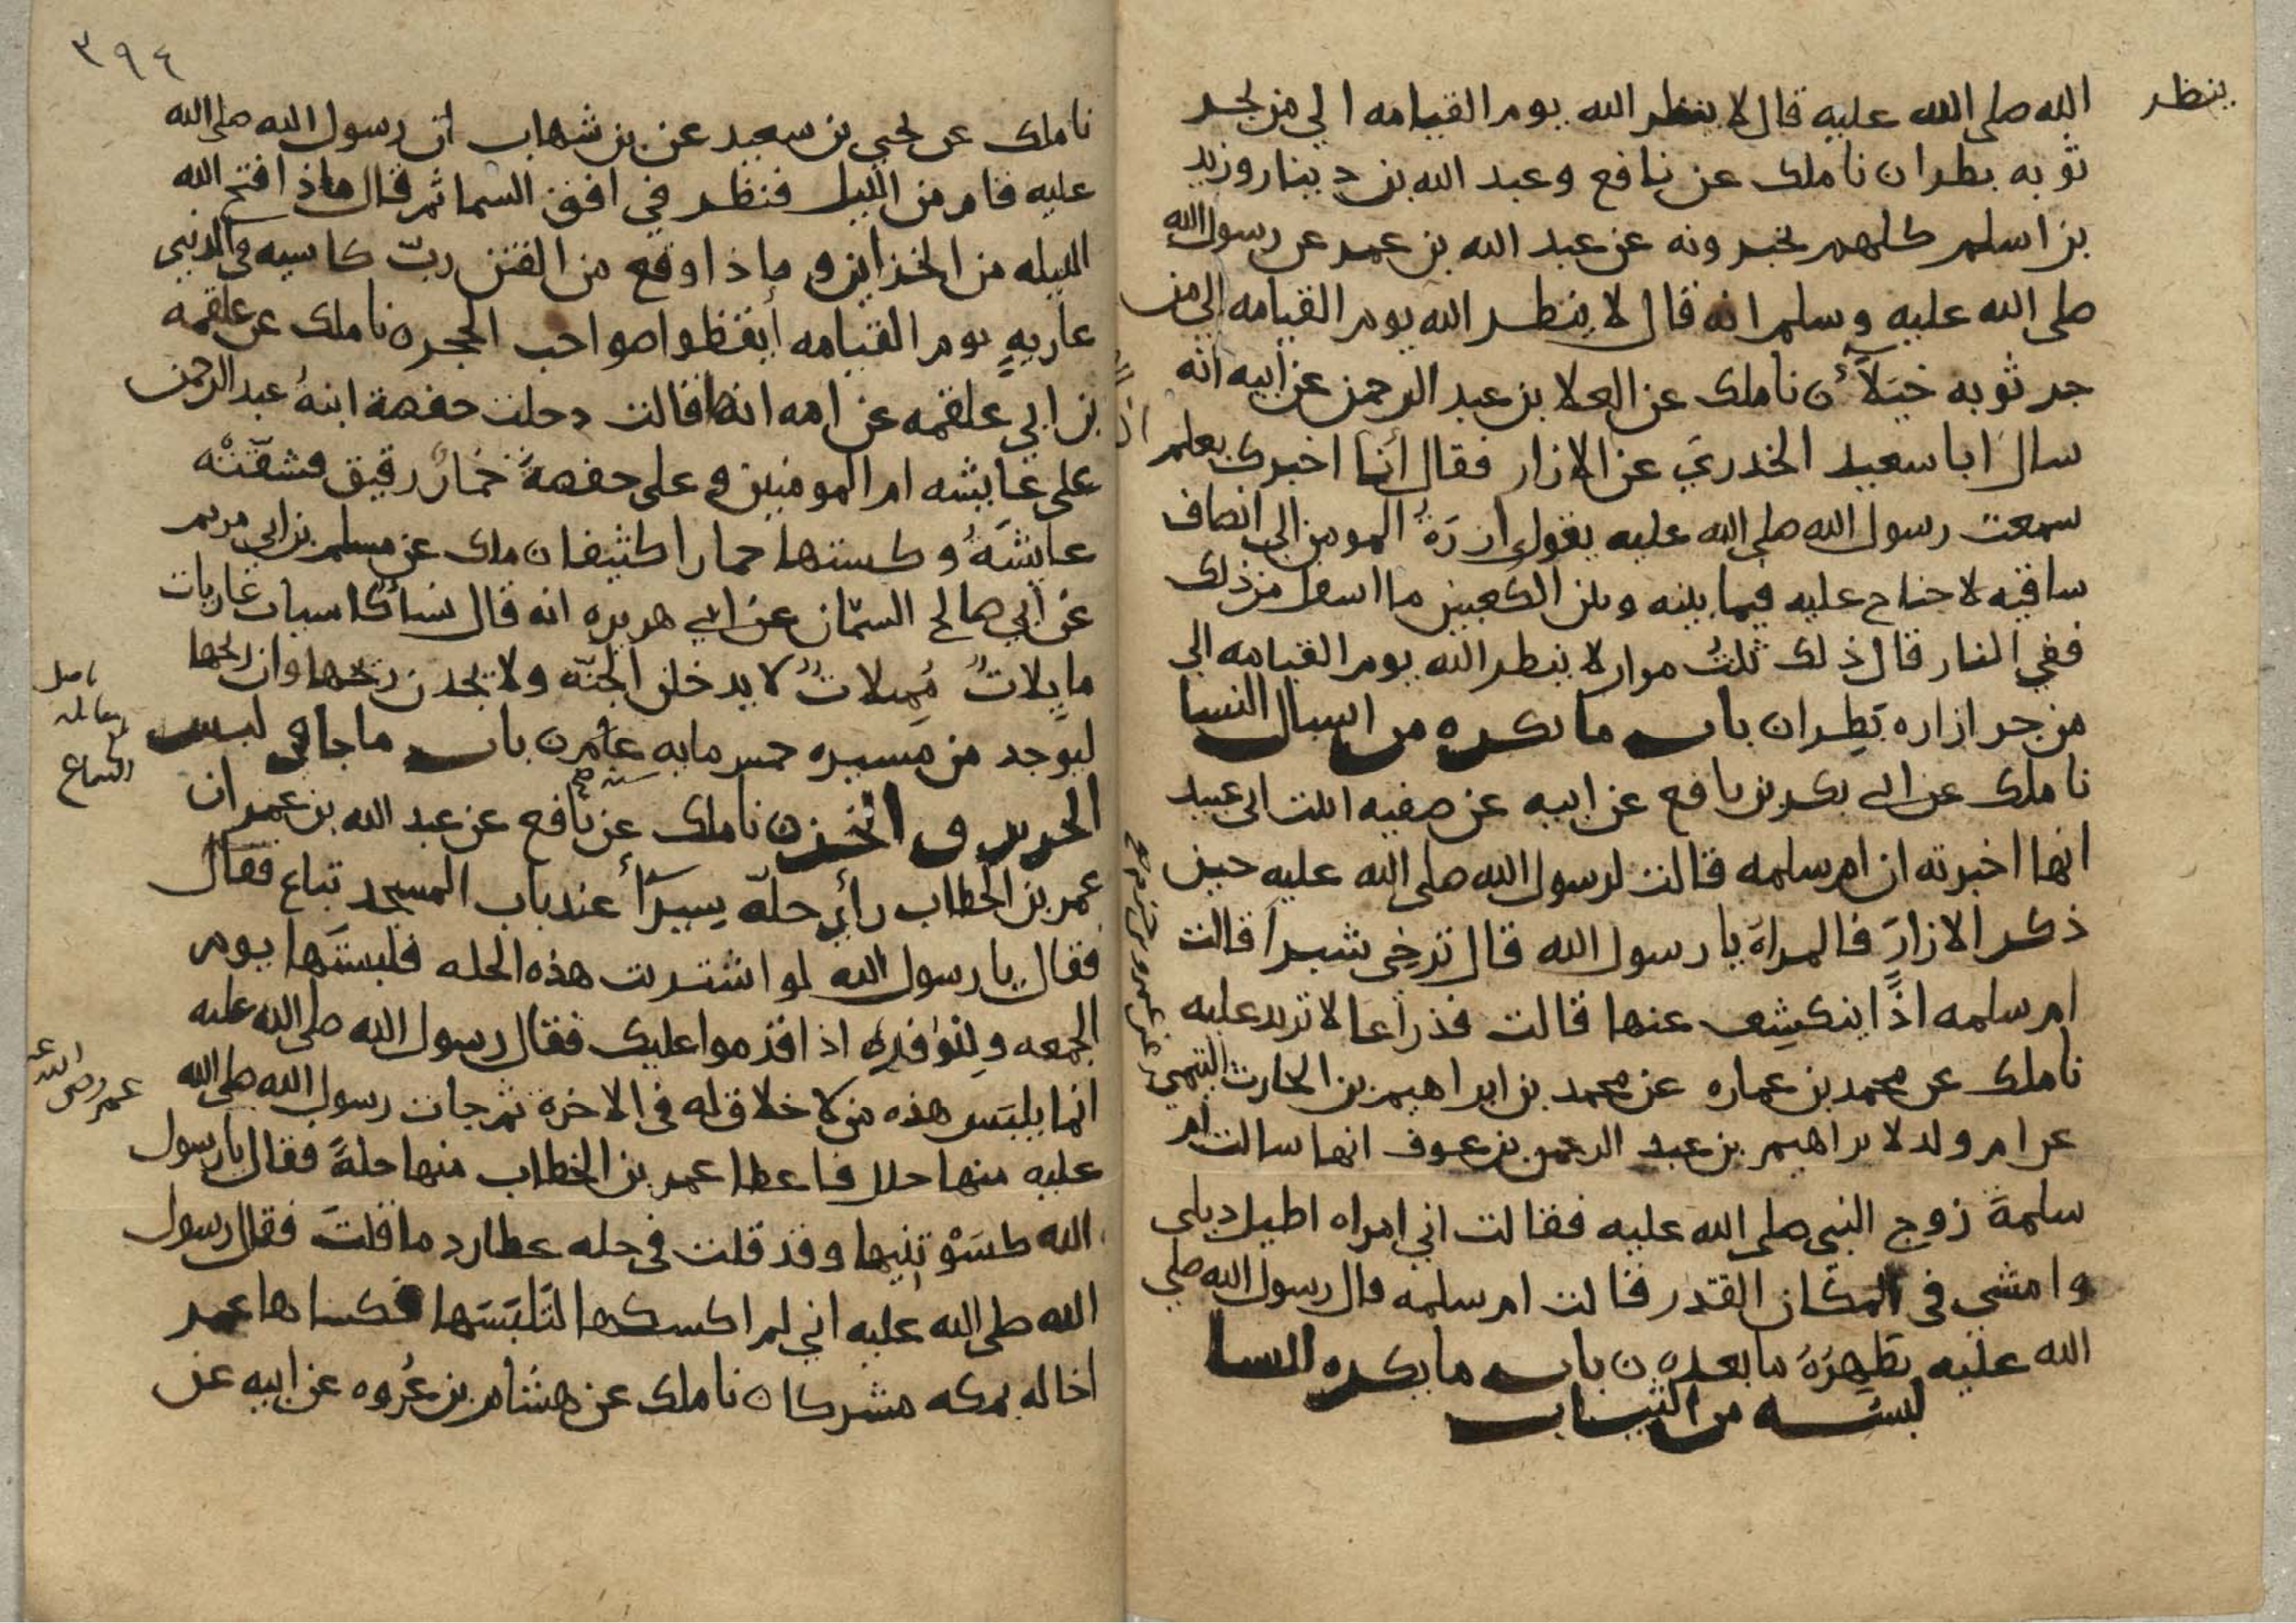 ينظر
الله صلى الله عليه قال لا ينظر الله يوم القيامه الي من يجر
ثوبه بطرا ن نا ملك عن نافع وعبد الله بن دينار وزيد
بن اسلم كلهم يخبرونه عن عبد الله بن عمر عن رسول الله
صلى الله عليه وسلم انه قال لا ينظر الله يوم القيامه الي من
جر ثوبه خيلآء ن نا ملك عن العلا بن عبد الرحمن عن ابيه انه
سال ابا سعيد الخدري عن الازار فقال أنا اخبرك بعلم
سمعت رسول الله صلى الله عليه يقول ازرَةُ المومن الى انصاف
ساقيه لا جناح عليه فيما بينه وبين الكعبين ما اسفل من ذلك
ففي النار قال ذلك ثلثُ مرار لا ينظر الله يوم القيامه الي
من جر ازاره بَطِرا ن باب ما يكره من اسبال النسا
نا ملك عن ابي بكر بن نافع عن ابيه عن صفيه ابنت ابي عبيد
انها اخبرته ان ام سلمه قالت لرسول الله صلى الله عليه حين
ذكر الازارَ فالمراة يا رسول الله قال تُرخِي شبراً قالت
ام سلمه اذًا ينكشِف عنها قالت فذراعا لا تزيد عليه
نا ملك عن محمد بن عماره عن محمد بن ابراهيم بن الحارث التيمي
عن ام ولد لابراهيم بن عبد الرحمن بن عوف انها سالت ام
سلمة زوج النبي صلى الله عليه فقالت اني امراه اطيل ذيلي
وامشي في المكان القذر فقالت ام سلمه قال رسول الله صلي
الله عليه يطهِرَهُ ما بعده ن باب ما يكره النسا
لبسه من الثياب
٣٩٤
نا ملك عن يحيي بن سعيد عن بن شهاب ان رسول الله صلى الله
عليه قام من الليل فنظر في افق السما ثم قال ماذا فتح الله
الليله من الخزاين و ماذا وقع من الفتن ربّ كاسيه في الدنيي
عاريهٍ يوم القيامه أيقظوا صواحب الحجره نا ملك عن علقمه
بن ابي علقمه عن امه انها قالت دخلت حفصة ابنةُ عبد الرحمن
على عايشه ام المومنين و على حفصة خمارٌ رقيق فشقّتْه
عايشَةُ و كستها خمارا كثيفا ن ملك عن مسلم بن ابي مريم
عن أبي صالح السمّان عن ابي هريره انه قال نساءٌ كاسيات عاريات
مايلاتٌ مُميلاتٌ لا يدخلن الجنّه ولا يجدن ريحها وان ريحها
ليوجد من مسيره خمس مايه عام ن باب ما جا في لبس
الحرير و الخز ن نا ملك عن نافع عن عبد الله بن عمر ان
عمر بن الخطاب رأى حلّة سِيَرآءَ عند باب المسجد تباع فقال
فقال يا رسول الله لو اشتريت هذه الحله فلبستَها يوم
الجمعه ولِلوُفدِ اذا قدموا عليك فقال رسول الله صلى الله عليه
انما يلبَس هذه من لا خلاق له في الاخرة ثم جات رسول الله صلى الله
عليه منها حلل فاعطا عمر بن الخطاب منها حلةً فقال يا رسول
الله كسَوْتنيها وقد قلت في حله عطارد ما قلتَ فقال رسول
الله صلى الله عليه اني لم اكسكها لتَلبَسَها فكساها عمر
اخا له بمكه مشركا ن نا ملك عن هشام بن عُروه عن ابيه عن
عمر رضي الله عنه